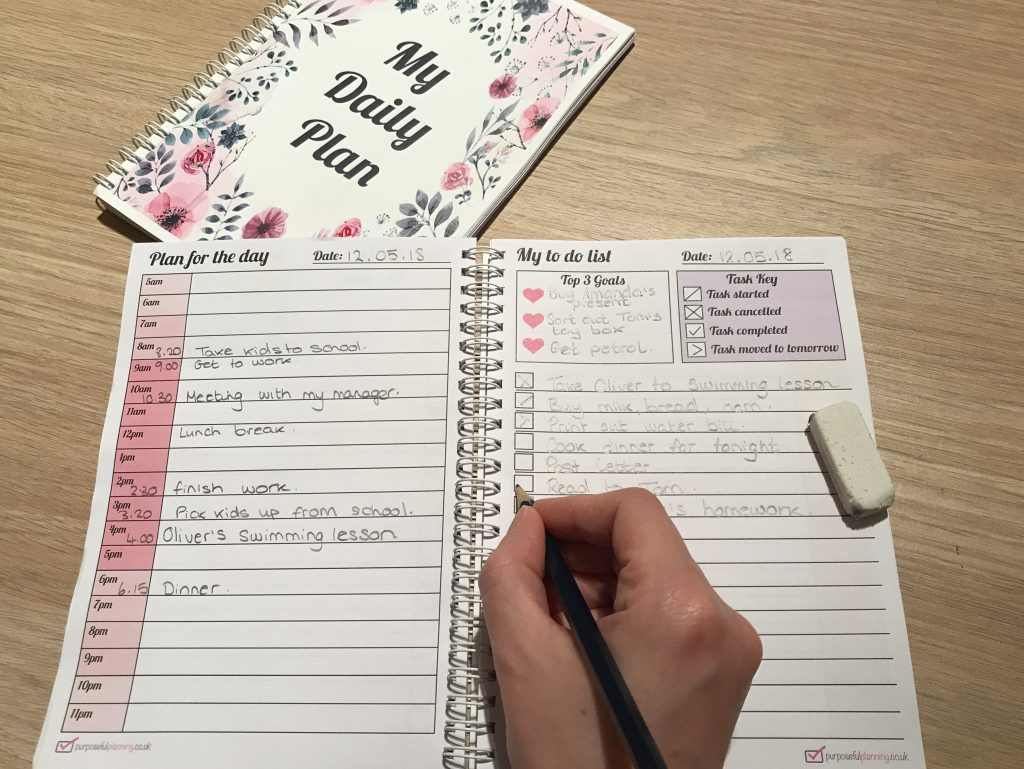 My
Daily
Plan
Plan for the day
Date: 12.05.18
5am
6am
7am
8am 8.20 Take kids to school.
9am 9.00 Get to work.
10am
10.30 Meeting with my manager.
11am
12pm Lunch break.
1pm
2pm
2.30 finish work.
3pm
3.20 Pick kids up from school.
4pm
4.00 Oliver's swimming lesson
5pm
6pm
6.15 Dinner.
7pm
8pm
9pm
10pm
11pm
purposefulplanning.co.uk
My to do list
Date: 12.05.18
Top 3 Goals
Buy Amanda's
present
Sort out Tom's
toy box
Get petrol.
Task Key
Task started
Task cancelled
Task completed
Task moved to tomorrow
Take Oliver to swimming lesson
Buy milk, bread, ham.
Print out water bill.
Cook dinner for tonight.
Post letter
Read to Tom.
homework.
purposefulplanning.co.uk